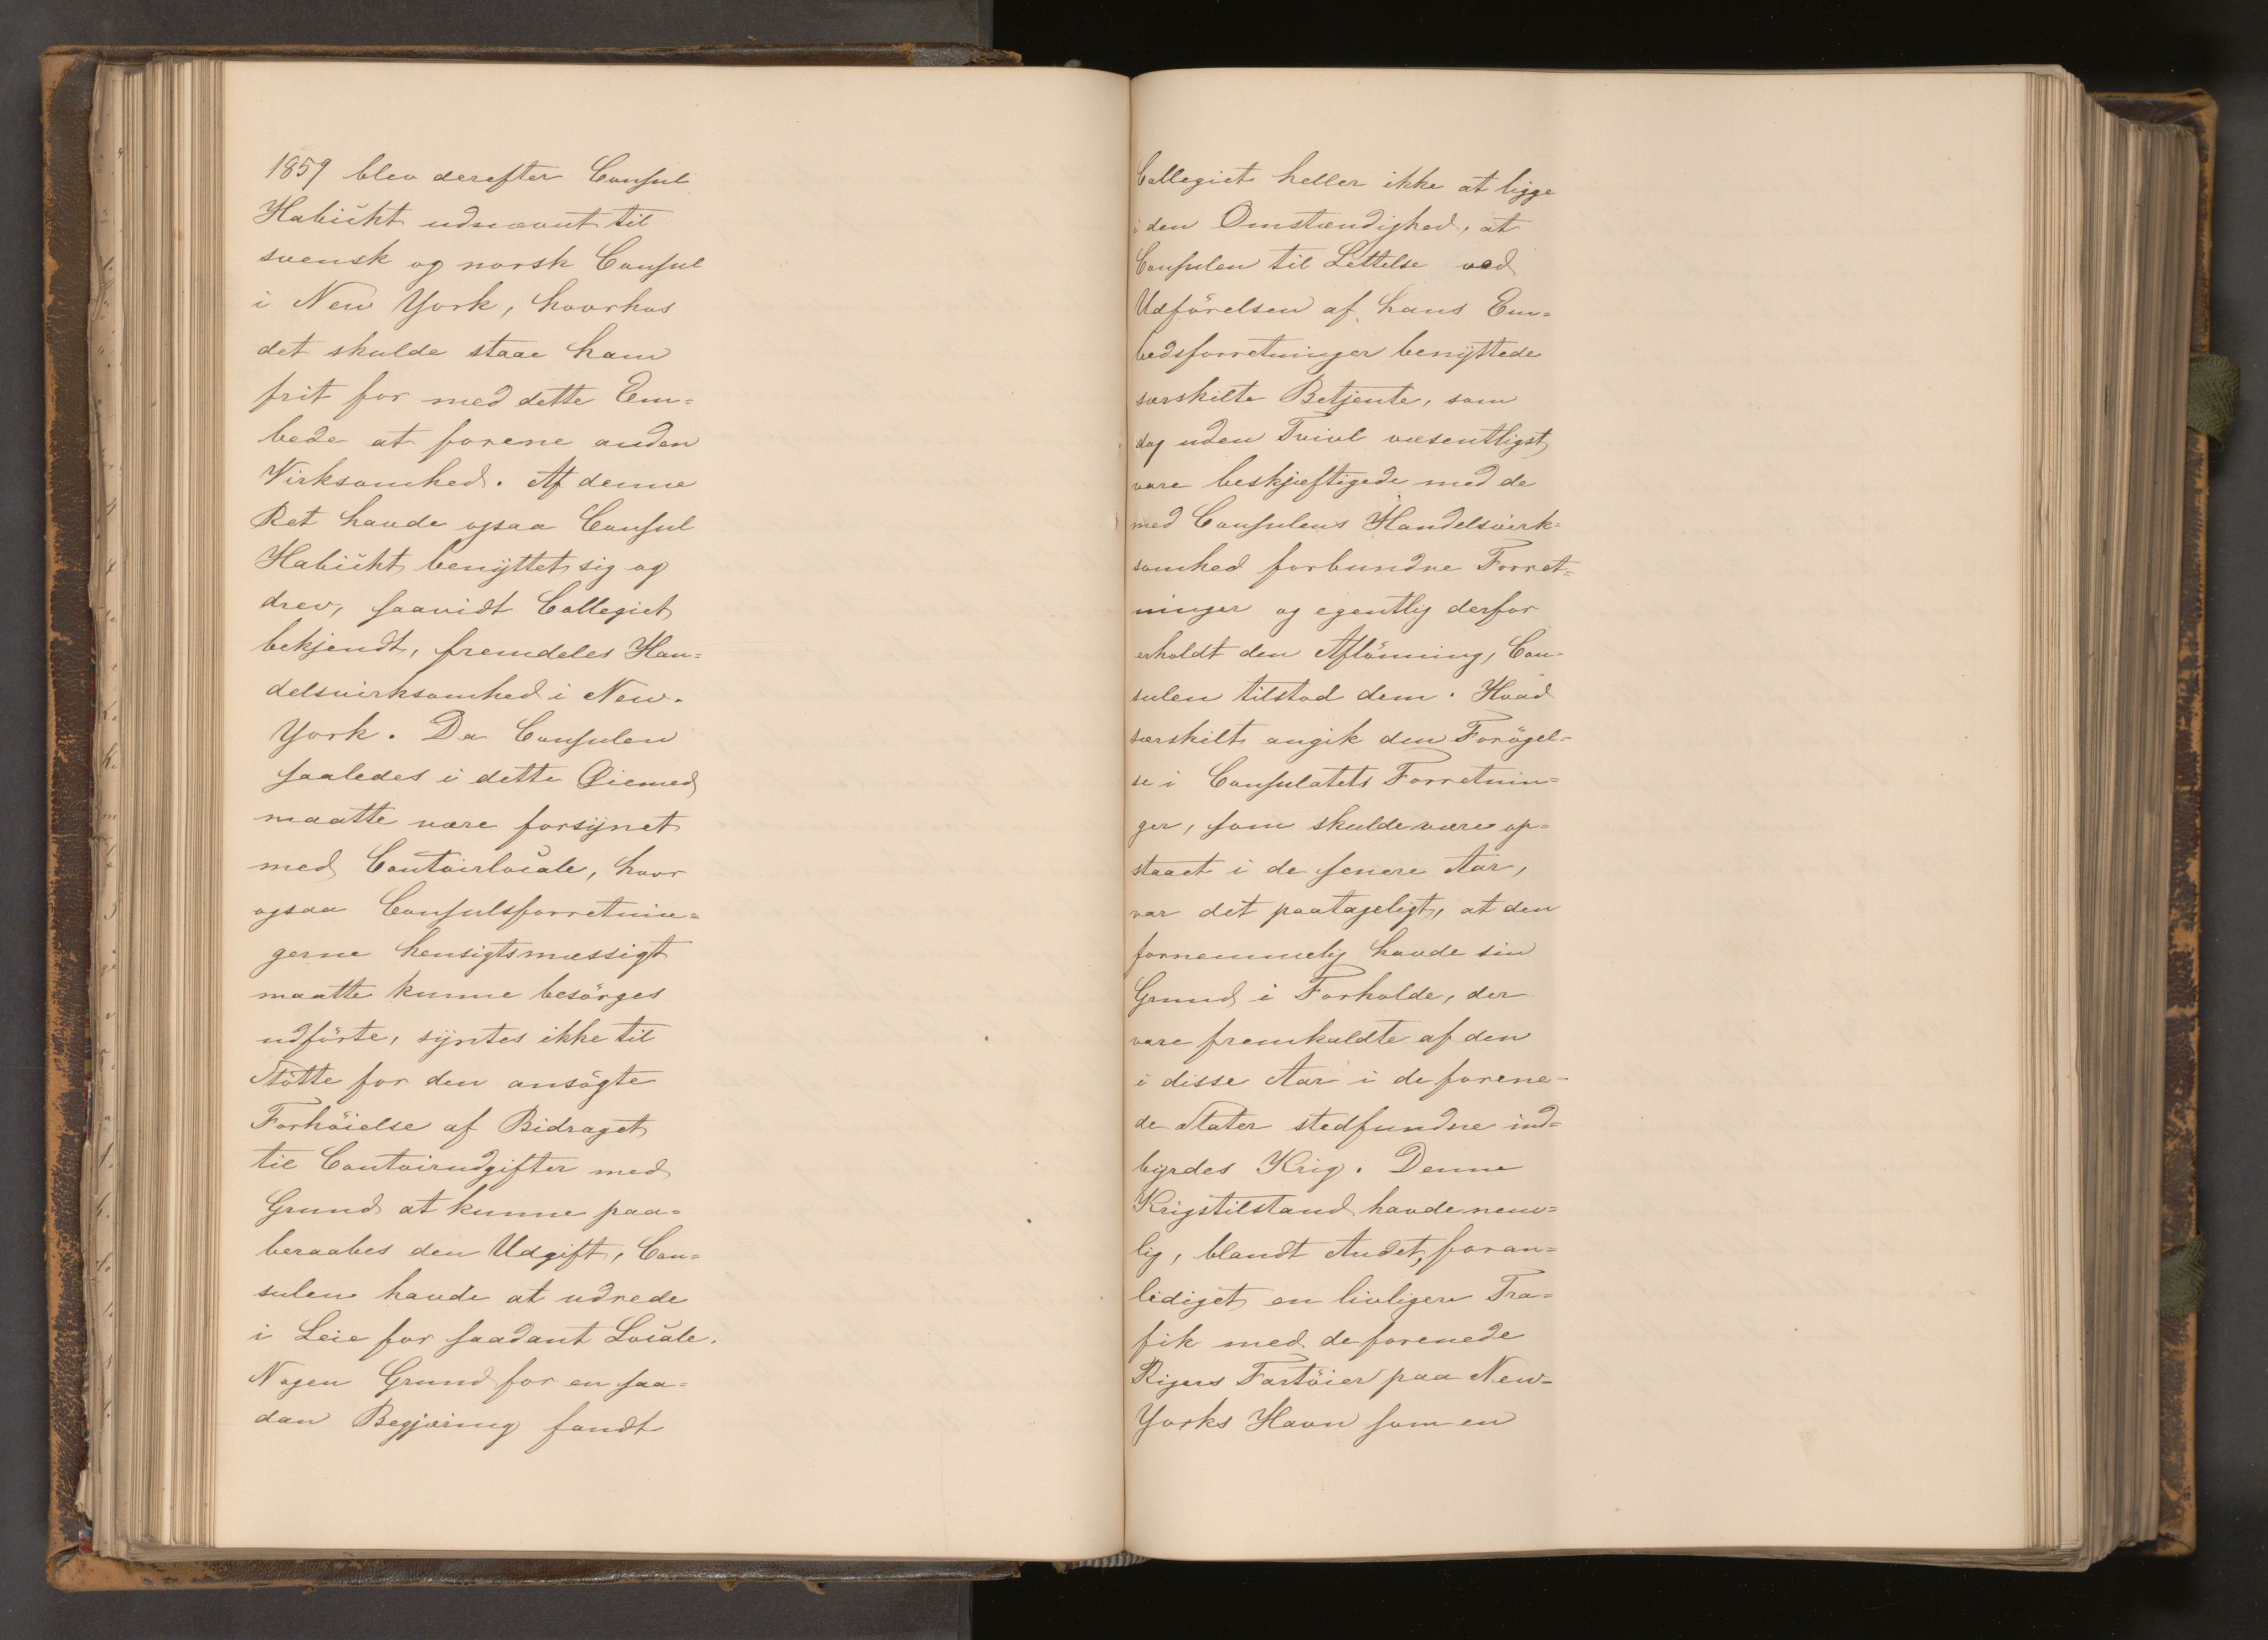 1859 blev derefter Consul
Habicht udnævnt til
svensk og norsk Consul
i New York, hvorhos
det skulde staae ham
frit for med dette Em=
bede at forene anden
Virksomhed. Af denne
Ret havde ogsaa Consul
Habicht benyttet sig og
drev, saavidt Collegiet
bekjendt, fremdeles Han=
delsvirksomhed i New-
York. Da Consulen
saaledes i dette Øiemed
maatte være forsynet
med Contoirlocale, hvor
ogsaa Consulsforretnin=
gerne hensigtsmæssigt
maatte kunne besörges
udförte, syntes ikke til
Stötte for den ansögte
Forhöielse af Bidraget
til Contoirudgifter med
Grund at kunne paa=
beraabes den Udgift, Con=
sulen havde at udrede
i Leie for saadant Locale.
Nogen Grund for en saa=
dan Begjæring fandt
Collegiet heller ikke at ligge
i den Omstændighed, at
Consulen til Lettelse ved
Udförelsen af hans Em=
bedsforretninger benyttede
særskilte Betjente, som
dog uden Tvivl væsentligst
vare beskjæftigede med de
med Consulens Handelsvirk=
somhed forbundne Forret=
ninger og egentlig derfor
erholdt den Aflönning, Con=
sulen tilstod dem. Hvad
særskilt angik den Forögel=
se i Consulatets Forretnin=
ger, som skulde være op=
staaet i de senere Aar,
var det paatageligt, at den
fornemmelig havde sin
Grund i Forholde, der
vare fremkaldte af den
i disse Aar i de forene=
de Stater stedfundne ind=
byrdes Krig. Denne
Krigstilstand havde nem=
lig, blandt Andet, foran=
lediget en livligere Tra=
fik med de forenede
Rigers Fartöier paa New-
Yorks Havn som en